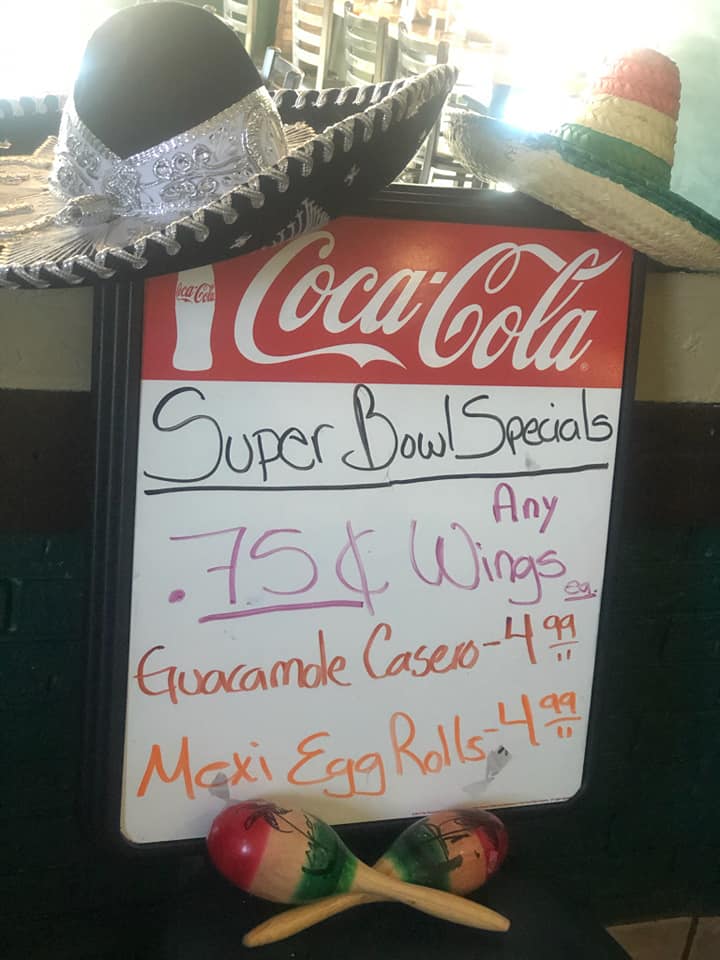 Coca-Cola
Coca-Cola
Super Bowl Specials
Any
.75¢ Wings ea.
Guacamole Casero - 4.99
Mexi Egg Rolls - 4.99